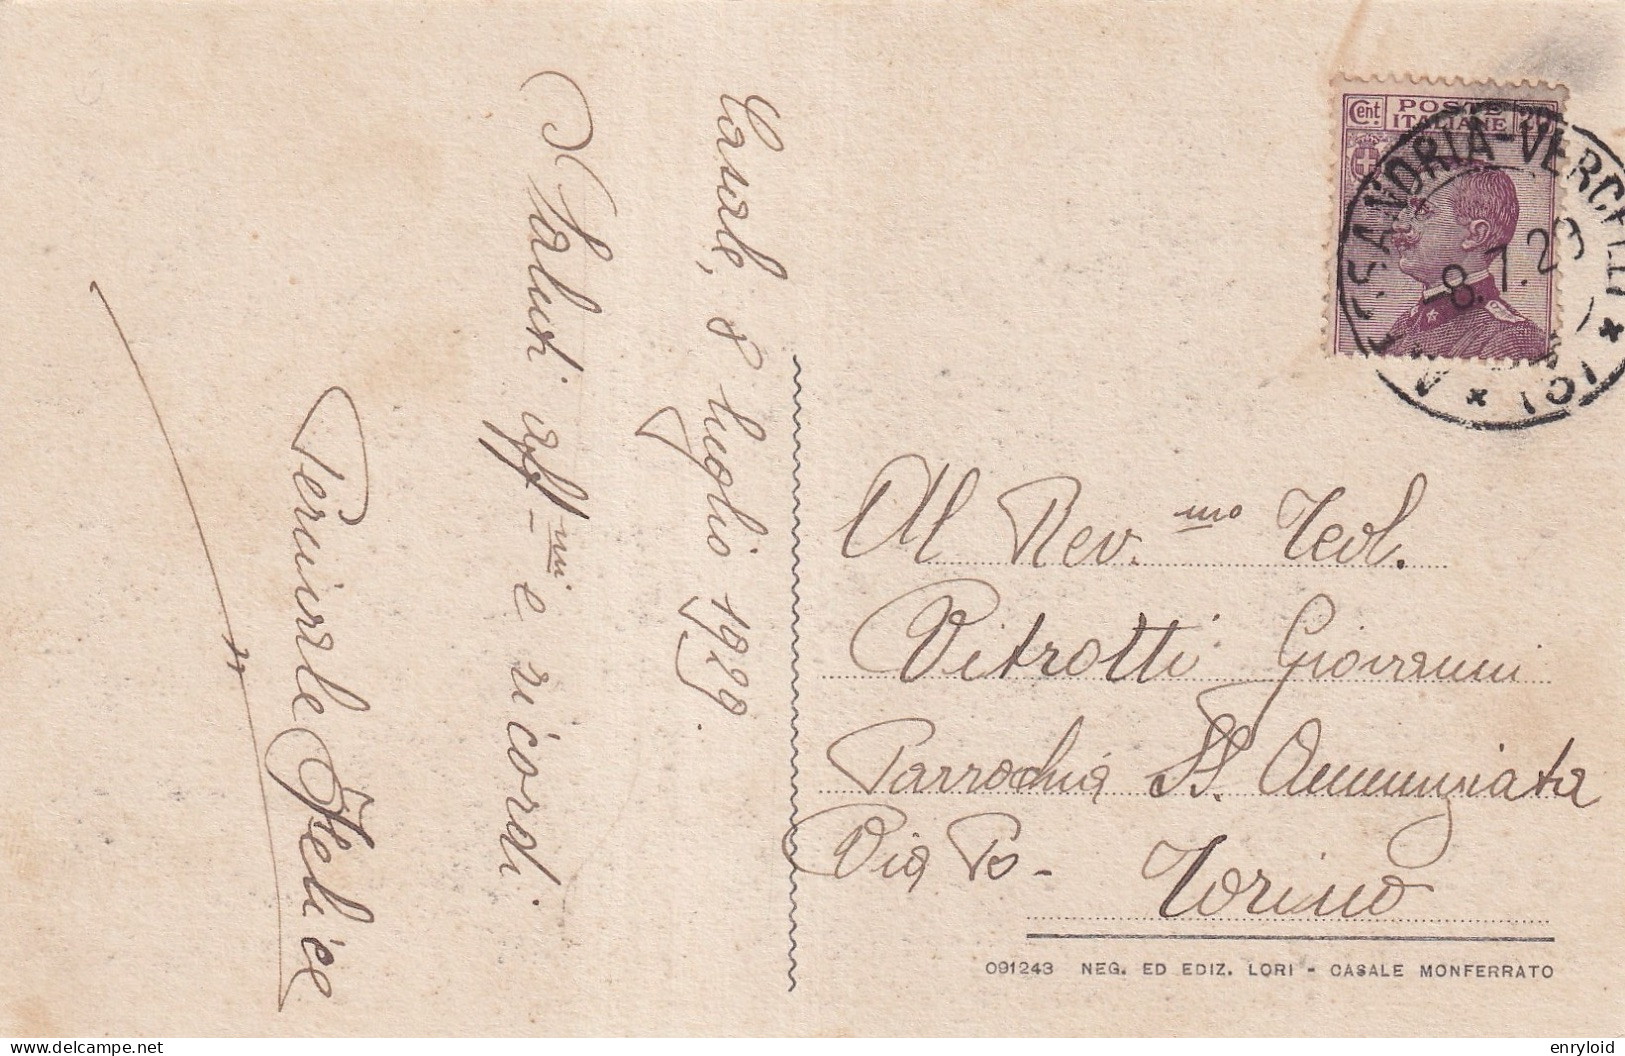 Casale, 8 luglio 1929.
Saluti aff-mi e ricordi.
Felice
Cent. 20
POSTE
ITALIANE
ALESSANDRIA-VERCELLI
-8.7.29
Al Rev.mo Teol.
Vitrotti Giovanni
Parrochia SS. Annunziata
Via Po -
Torino
091243 NEG. ED EDIZ. LORI - CASALE MONFERRATO
delcampe.net
enryloid